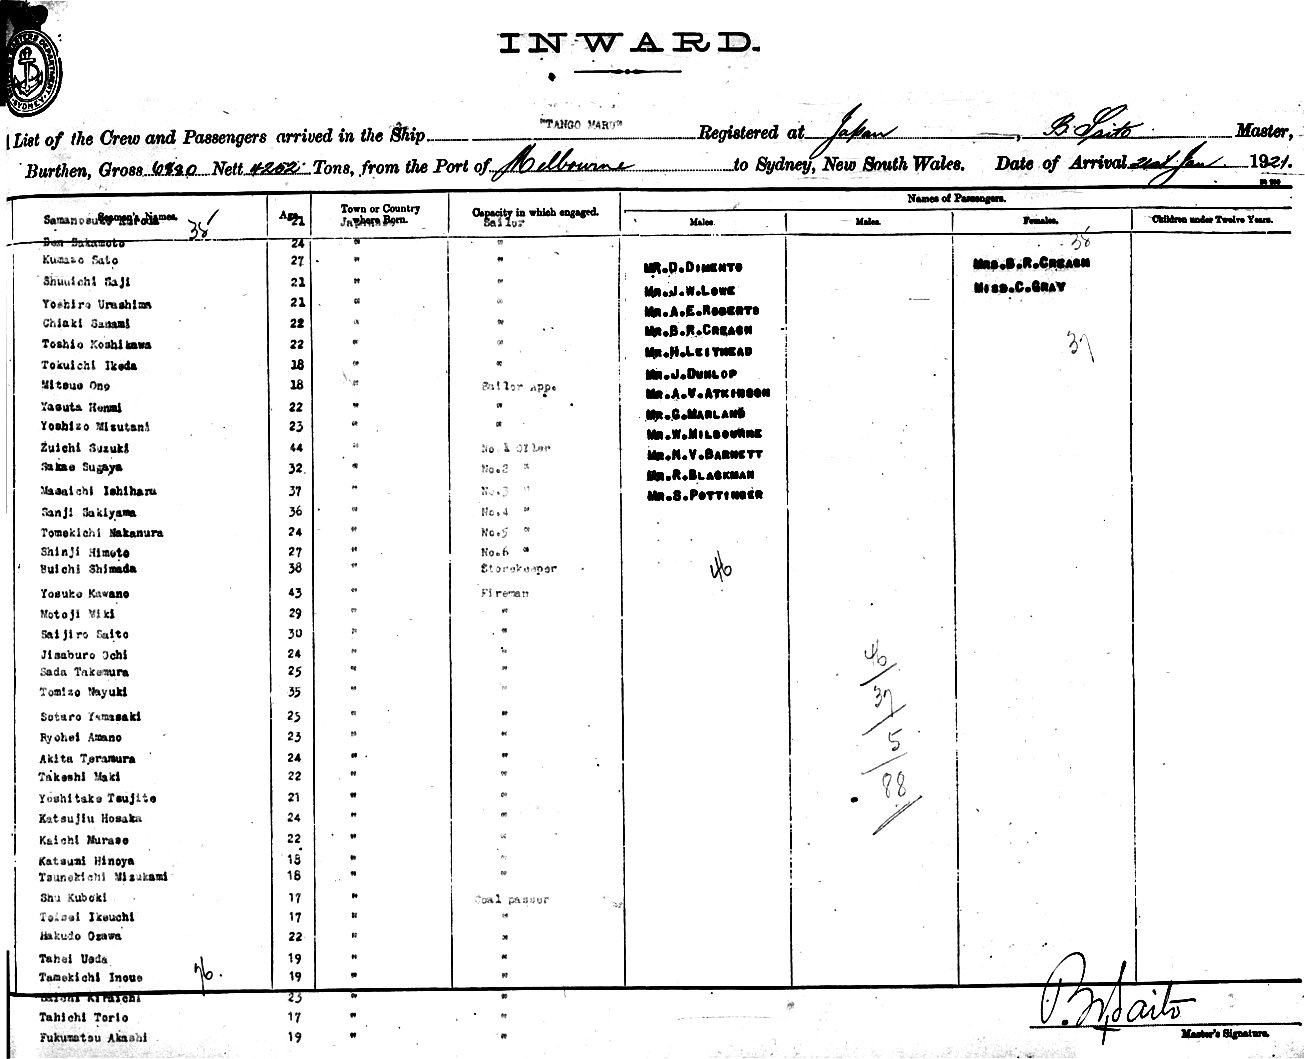 INWARD.
SYDNEY
List of the Crew and Passengers arrived in the Ship "TANGO MARU" Registered at Japan, B. Saito Master,
Burthen, Gross Nett 4252 Tons, from the Port of Melbourne to Sydney, New South Wales. Date of Arrival 21st Jan 1921.
Seamen's Names. Age Town or Country where Born. Capacity in which engaged. Names of Passengers.
Males. Males. Females. Children under Twelve Years.
Samanosuke 38 21 Sailor
Sakamoto 24 " " 38
Kumazo Sato 27 " " MR.D.DIMENTO MRS.B.R.CREAGH
Shuuichi Saji 21 " " MR.J.W.LOWE MISS.C.GRAY
Yoshiro Urashima 21 " " MR.A.E.ROBERTS
Chiaki Sanami 22 " " MR.B.R.CREAGH
Toshio Koshikawa 22 " " MR.H.LEITHEAD 37
Tokuichi Ikeda 18 " " MR.J.DUNLOP
Mitsuo Ono 18 " Sailor Appe MR.A.V.ATKINSON
Yasuta Henmi 22 " " MR.G.MARLAND
Yoshizo Mizutani 23 " " MR.W.MILBOURNE
Zuichi Suzuki 44 " No.1 Oiler MR.N.V.BARNETT
Sakae Sugaya 32 " No.2 " MR.R.BLACKMAN
Masaichi Ishiharu 37 " No.3 " MR.S.POTTINGER
Sanji Sakiyama 36 " No.4 "
Tomekichi Nakanura 24 " No.5 "
Shinji Himoto 27 " No.6 "
Buichi Shimada 38 " Storekeeper 46
Yosuke Kawano 43 " Fireman
Motoji Miki 29 " "
Saijiro Saito 30 " "
Jisaburo Ochi 24 " " 46
Sada Takemura 25 " "
Tomizo Nayuki 35 " " 37
Sotaro Yamasaki 25 " "
Ryohei Amano 23 " " 5
Akita Teramura 24 " "
Takeshi Maki 22 " " 88
Yoshitake Tsujito 21 " "
Katsujiu Hosaka 24 " "
Kaichi Murase 22 " "
Katsumi Hinoya 18 " "
Tsunekichi Mizukami 18 " "
Shu Kuboki 17 " Coal passer
Teisei Ikeuchi 17 " "
Hakudo Ozawa 22 " "
Tahei Ueda 19 " "
Tamekichi Inoue 76. 19 " "
23 " "
Tahichi Torio 17 " " B. Saito
Fukumatsu Akashi 19 " " Master's Signature.